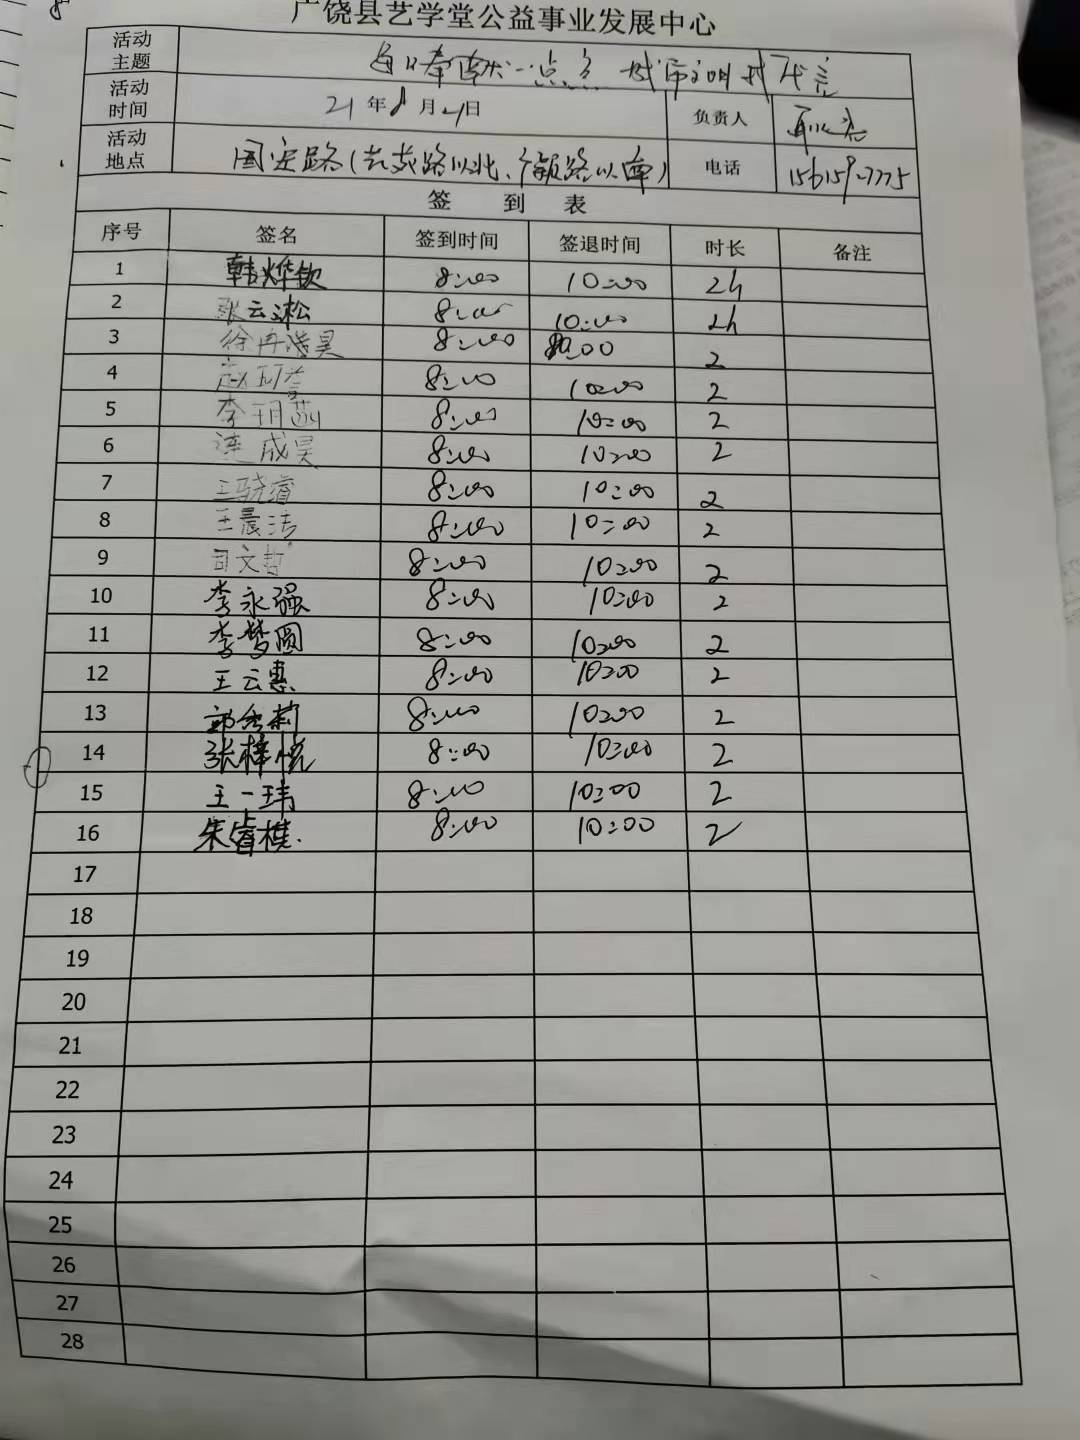 广饶县艺学堂公益事业发展中心
活动主题 每日奉献一点点 城市文明我代言
活动时间 21年8月21日 负责人
活动地点 国安路(以北、广颖路以南) 电话
签到表
序号 签名 签到时间 签退时间 时长 备注
1 韩烨钦 8:00 10:00 2h
2 张云淞 8:00 10:00 2h
3 徐冉浩昊 8:00 10:00 2
4 赵 8:00 10:00 2
5 李玥菡 8:00 10:00 2
6 连成昊 8:00 10:00 2
7 王骁睿 8:00 10:00 2
8 王晨洁 8:00 10:00 2
9 司文哲 8:00 10:00 2
10 李永强 8:00 10:00 2
11 李梦圆 8:00 10:00 2
12 王云惠 8:00 10:00 2
13 莉 8:00 10:00 2
14 张梓悦 8:00 10:00 2
15 王一玮 8:00 10:00 2
16 朱睿祺 8:00 10:00 2
17
18
19
20
21
22
23
24
25
26
27
28